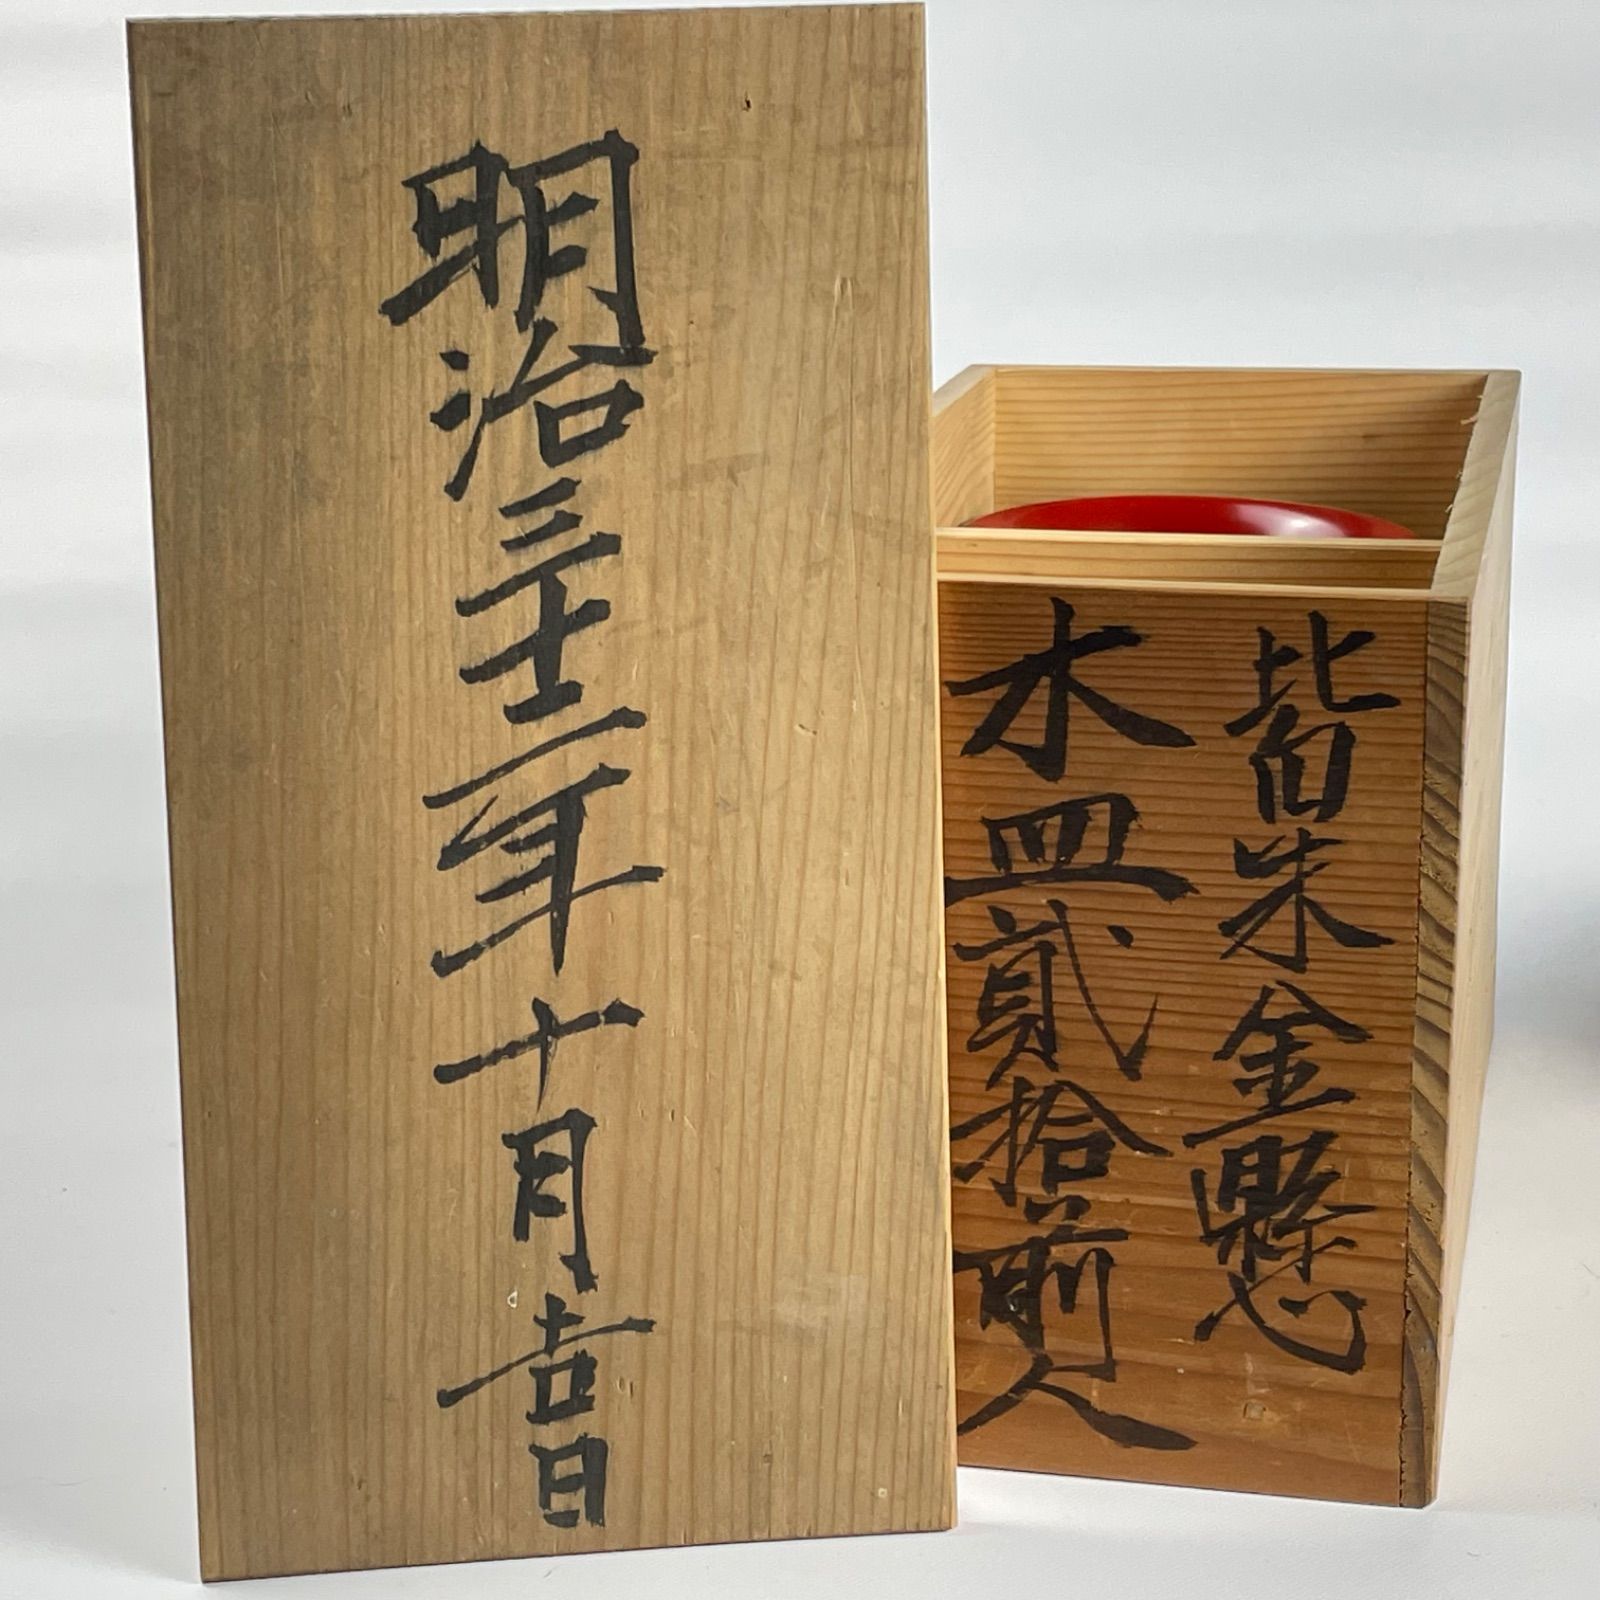 明治三十二年十月吉日
皆朱金懸
木皿貳拾前入